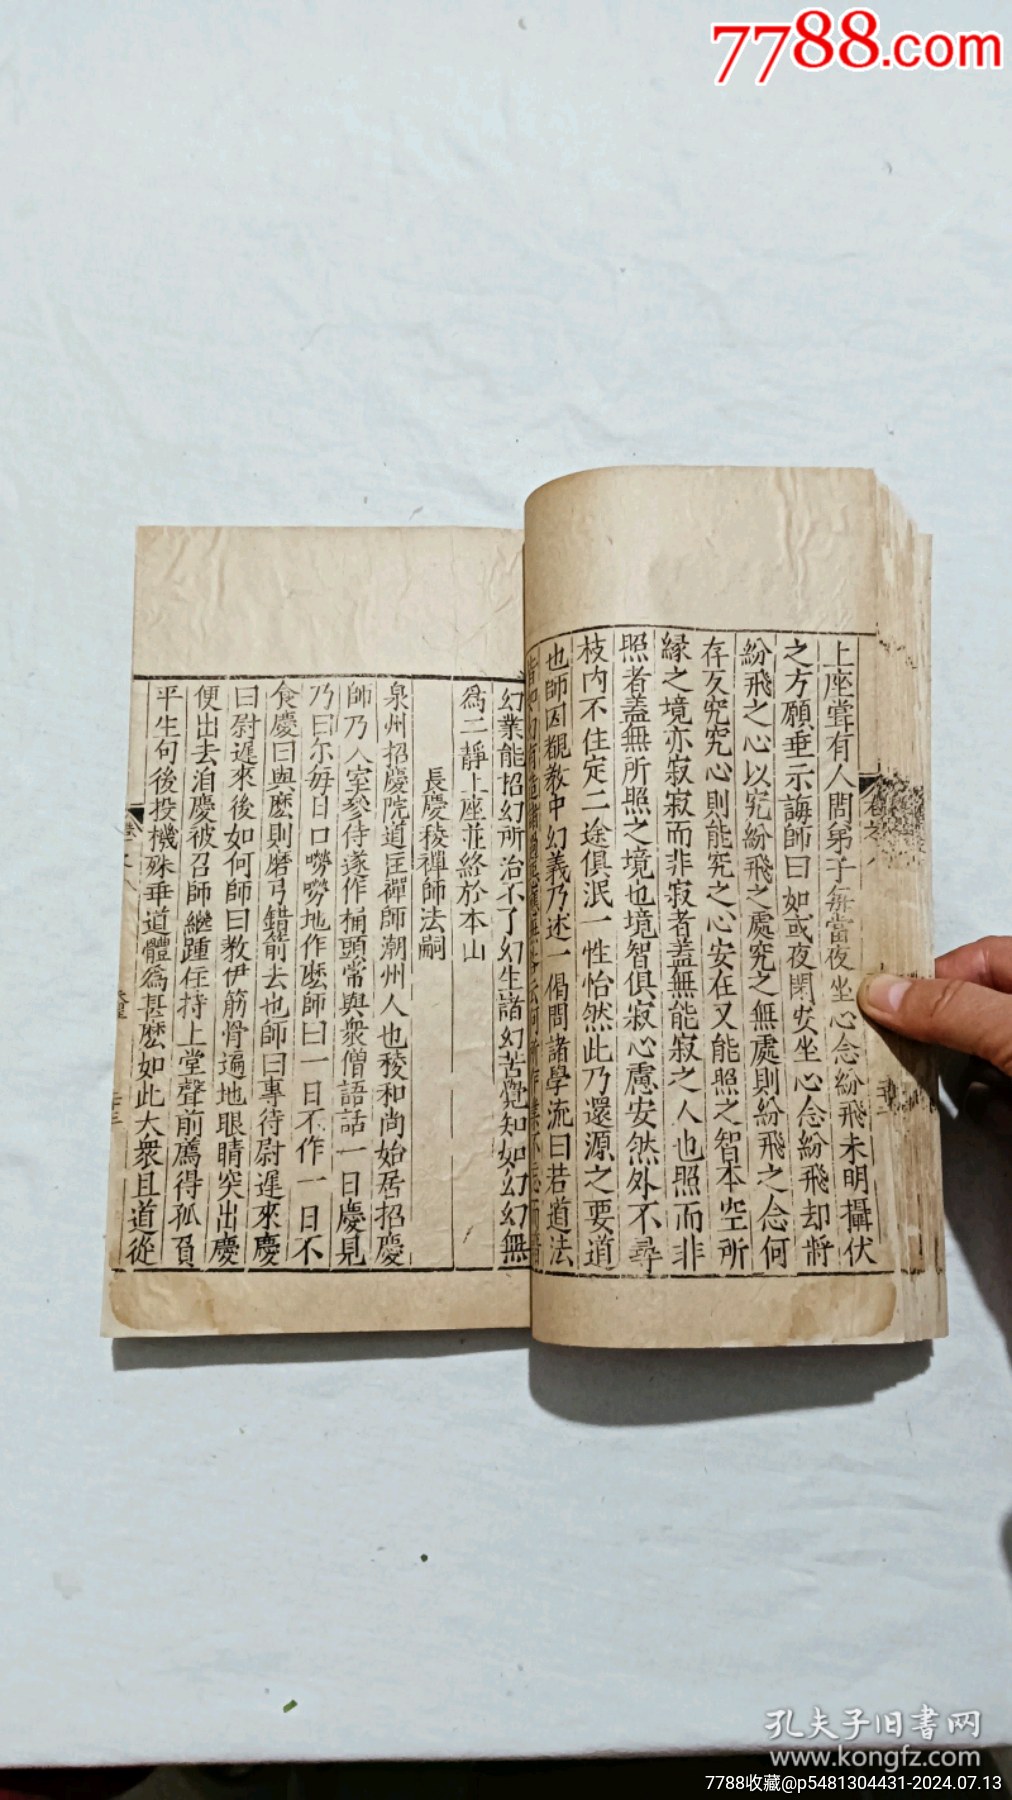 7788.com
上座嘗有人問弟子每當夜坐心念紛飛未明攝伏
之方願垂示誨師曰如或夜閑安坐心念紛飛却將
紛飛之心以究紛飛之處究之無處則紛飛之念何
存反究究心則能究之心安在又能照之智本空所
緣之境亦寂寂而非寂者蓋無能寂之人也照而非
照者蓋無所照之境也境智俱寂心慮安然外不尋
枝內不住定二途俱泯一性怡然此乃還源之要道
也師因觀教中幻義乃述一偈問諸學流曰若道法
皆如幻有造諸過惡應無咎云何所作業不忘而藉
幻業能招幻所治不了幻生諸幻苦覺知如幻幻無
爲二靜上座並終於本山
長慶稜禪師法嗣
泉州招慶院道匡禪師潮州人也稜和尚始居招慶
師乃入室參侍遂作桶頭常與衆僧語話一日慶見
乃曰尔每日口嘮嘮地作麽師曰一日不作一日不
食慶曰與麽則磨弓錯箭去也師曰專待尉遲來慶
曰尉遲來後如何師曰教伊筋骨遍地眼睛突出慶
便出去洎慶被召師繼踵住持上堂聲前薦得孤負
平生句後投機殊垂道體爲甚麽如此大衆且道從
孔夫子旧書网
www.kongfz.com
7788收藏@p5481304431-2024.07.13